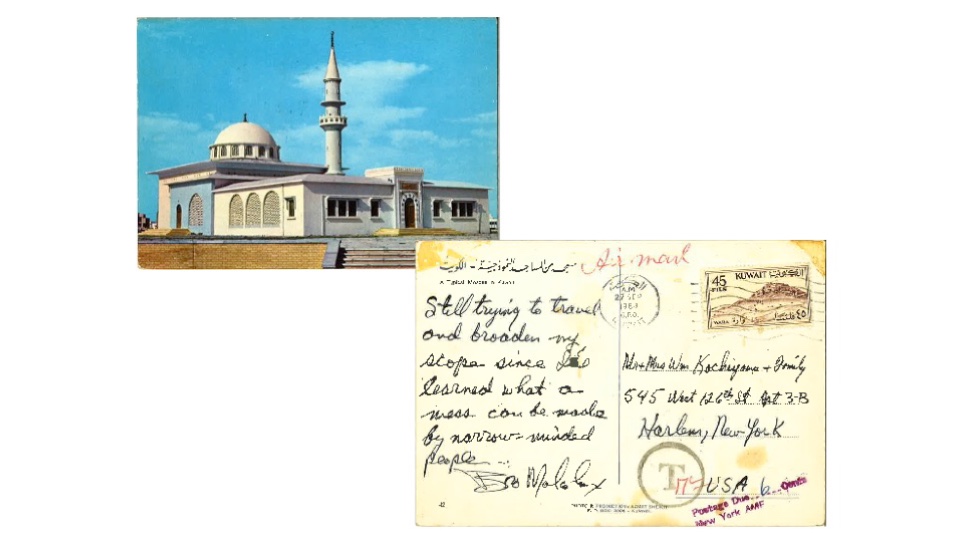 مسجد من المساجد النموذجية - الكويت
A Typical Mosque in Kuwait
Air mail
Still trying to travel
and broaden my
scope since I've
learned what a
mess can be made
by narrow-minded
people...
Bro Malcolm X
42
AM
27 SEP
196
G.P.O.
KUWAIT
45
FILS
KUWAIT
الكويت
WARA
٤٥
Mr + Mrs Wm. Kochiyama + Family
545 West 126th St Apt 3-B
Harlem, New York
T
USA
Postage Due 6 cents
New York AMF